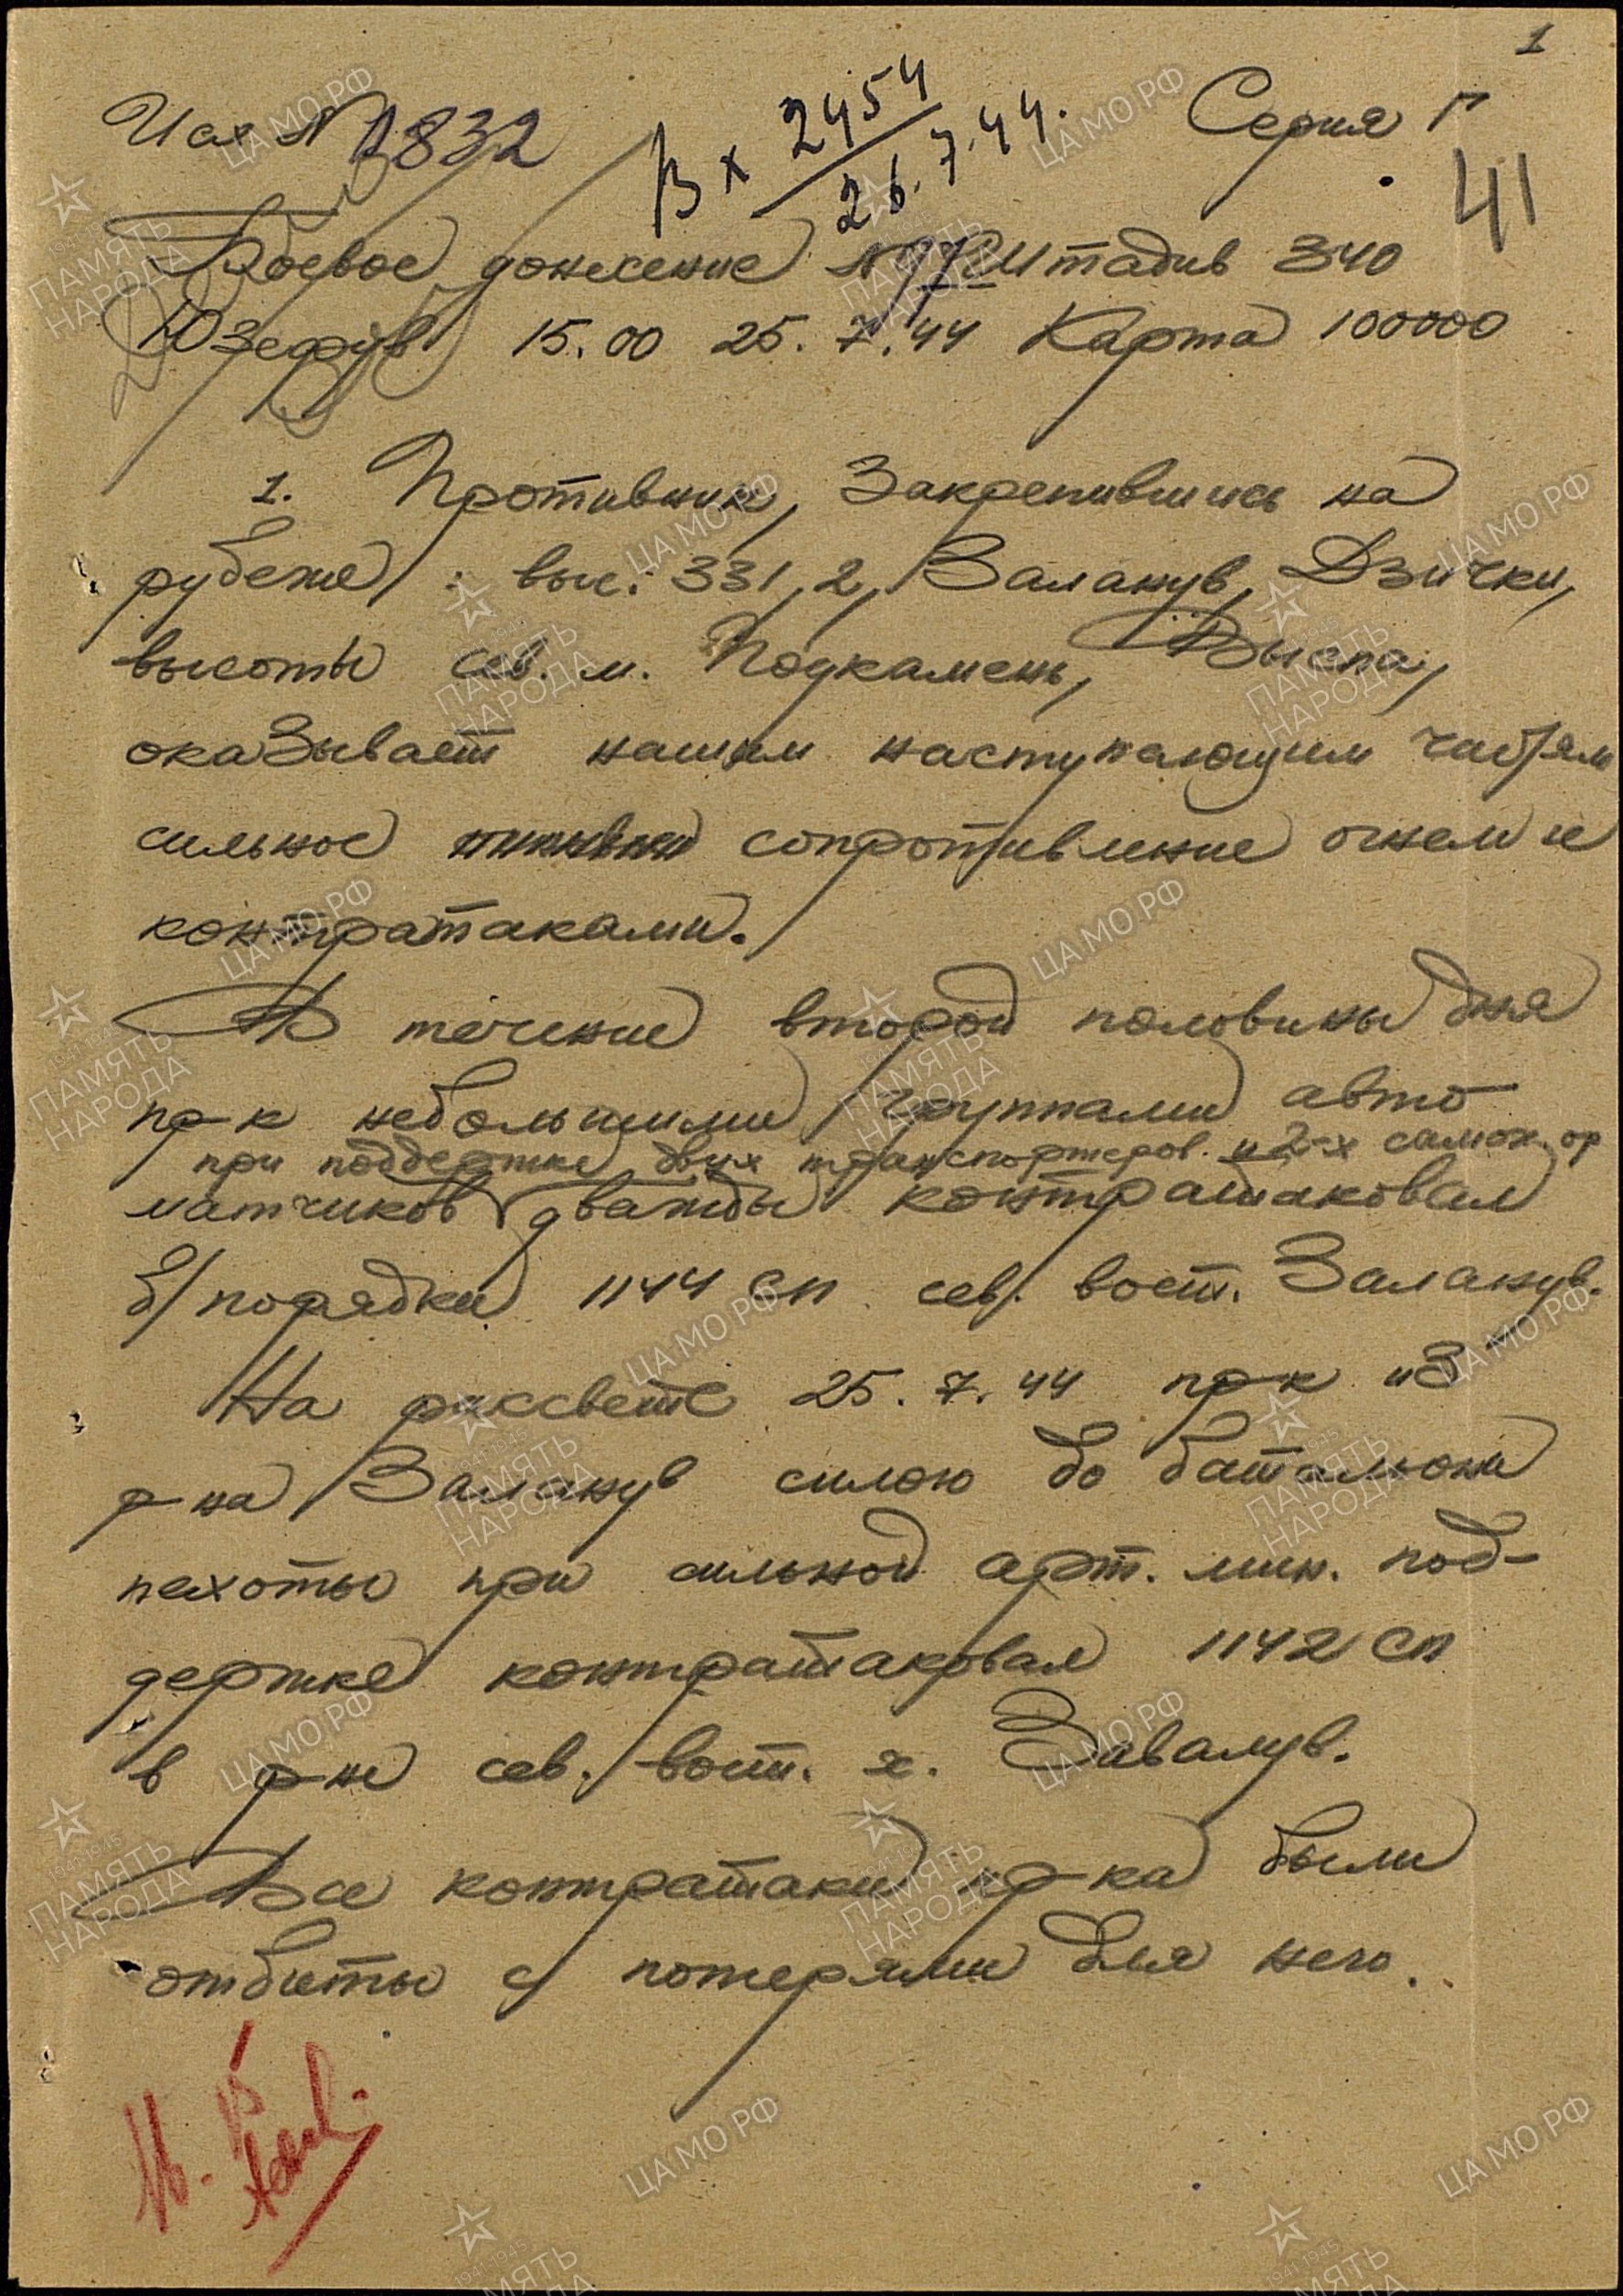 1
Исх № 0832
Вх 2454
26.7.44.
Серия Г
41
Боевое донесение № Штадив 340
Юзефув 15.00 25.7.44 Карта 100000
1. Противник, закрепившись на
рубеже: выс. 331,2, Заланув, Дзички,
высоты сев. м. Подкамень, Выспа,
оказывает нашим наступающим частям
сильное сопротивление огнем и
контратаками.
В течение второй половины дня
пр-к небольшими группами авто
при поддержке двух транспортеров и 2-х самох. ор
матчиков дважды контратаковал
б/порядки 1144 сп сев. вост. Заланув.
На рассвете 25.7.44 пр-к из
р-на Заланув силою до батальона
пехоты при сильной арт. мин. под-
держке контратаковал 1142 сп
в р-не сев. вост. х. Завалув.
Все контратаки пр-ка были
отбиты с потерями для него.
ЦА МО РФ
1941-1945
ПАМЯТЬ
НАРОДА